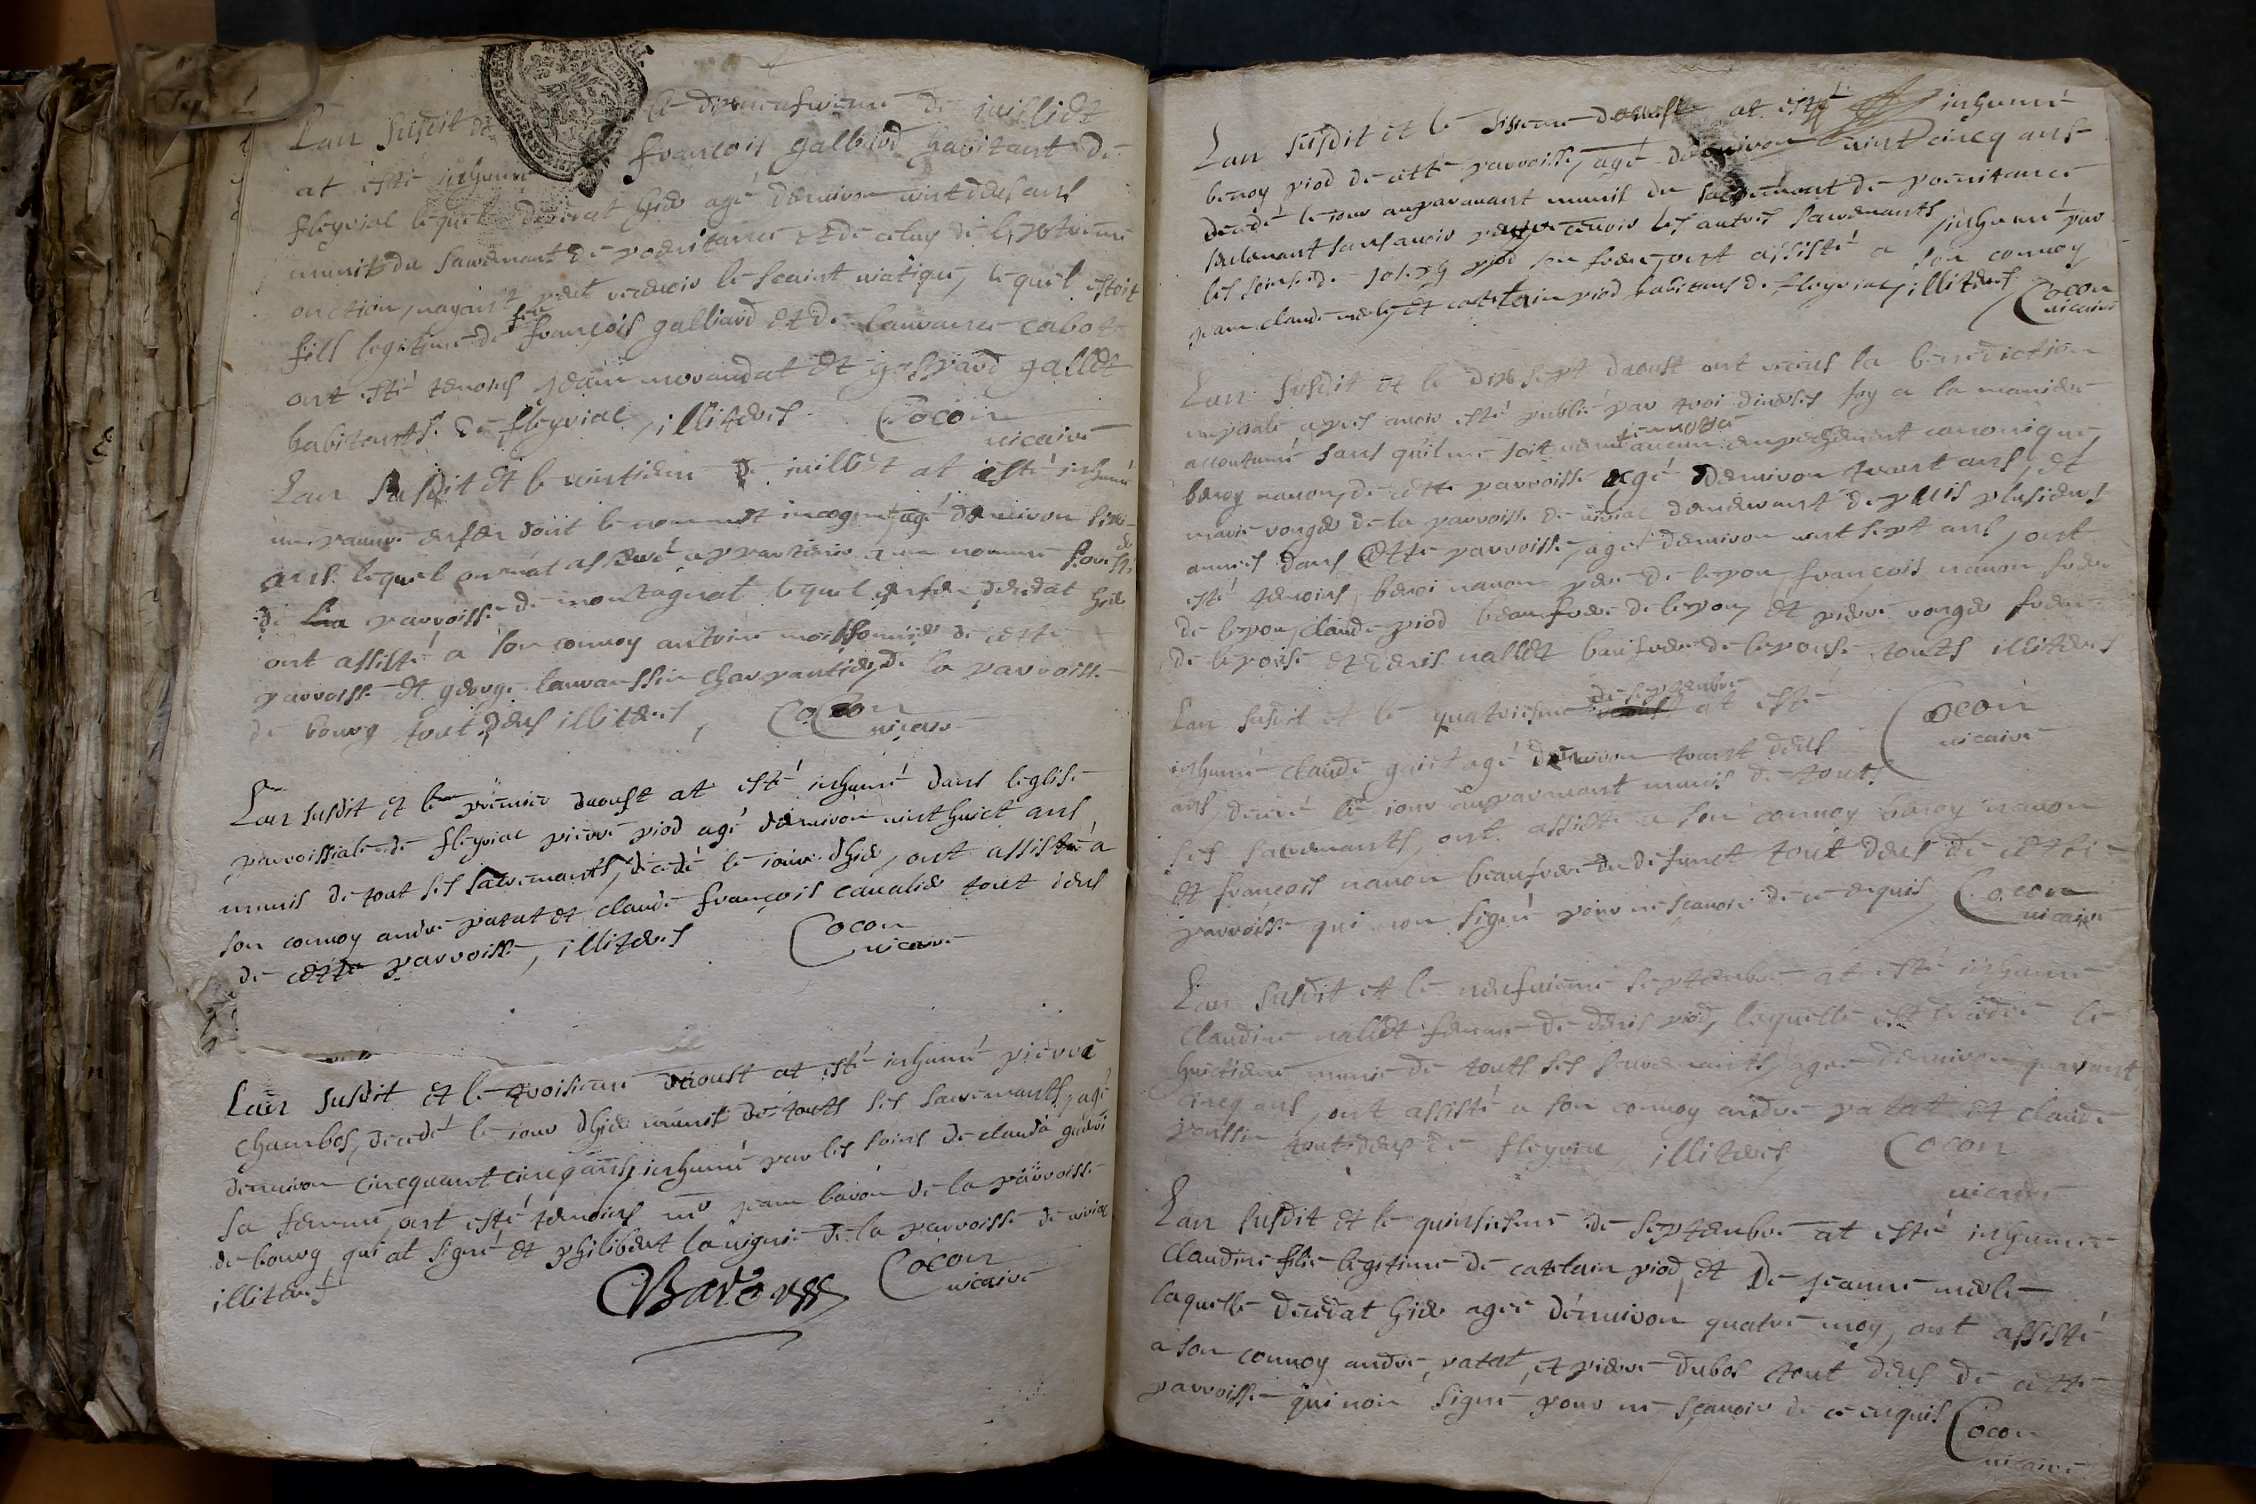 Lan susdit et le dixneufvieme de juilliet
at esté inhumé françois galliard habitant de
fleyriac lequel decedat hier agé denviron vint deus ans
munit du sacrement de poenitance et de celuy de lextreme
onction, nayant peut recevoir le scaint viatique, lequel estoit
fils legitime de feu françois galliard et de laurance cabot
ont esté temoins jean morandat et gaspard gallet
habitants de fleyriac, illiteres. Cocon
vicaire
Lan susdit et le vintiem de juilliet at esté inhumé
un pauvre enfen dont le nom est incognu, agé denviron
ans lequel on nat assuré appartenir a un nommé
de la parroisse de montagnat lequel enfen decedat hier
ont assisté a son convoy antoine moissonnier de cette
parroisse et george lauranssin charpantier de la parroisse
de bourg tout deus illiteres, Cocon
vicaire
Lan susdit et le premier daoust at esté inhumé dans leglise
parroissiale de fleyriac pierre piod agé denviron vint huict ans
munis de tout ses sacremants, decedé le jour dhier, ont assisté a
son convoy andre patat et claude françois cavalier tout deus
de cette parroisse, illiteres Cocon
vicaire
Lan susdit et le troisieme daoust at esté inhumé pierre
chambos, decedé le jour dhier munit de touts ses sacremants, agé
denviron cinquant cinq ans, inhumé par les soins de clauda
sa femme, ont esté temoins mr jean baron de la parroisse
de bourg qui at signé et philibert lavigne de la parroisse de viriac
illiteres Cocon
vicaire
Baron
Lan susdit et le sixieme daoust at esté inhumé
benoy piod de cette parroisse, agé denviron vint cinq ans
decedé le jour auparavant munis du sacremant de poenitance
seulemant sans avoir peut recevoir les autres sacremants, inhumé par
les soins de joseph piod son frere, ont assisté a son convoy
jean claude merle et catelain piod habitans de fleyriac, illiteres Cocon
vicaire
Lan susdit et le dixsept daoust ont receus la benediction
nuptiale apres avoir esté publié par troi diverses foy a la maniere
accoutumé sans quil me soit venu a ma notice aucun empechement canonique,
benoy nanon, de cette parroisse agé denviron trent ans, et
marie vonger de la parroisse de viriac demeurant depuis plusieurs
annees dans cette parroisse, agee denviron vint sept ans, ont
esté temoins, benoi nanon pere de lepou, françois nanon frere
de lepou, claude piod beau frere de lepou, et pierre vonger frere
de lepouse et denis nallet beaufrere de lepouse touts illiteres
Cocon
vicaire
Lan susdit et le quatriesme de septembre at esté
inhumé claude guiet agé denviron trent deus
ans, decedé le jour auparavant munis de touts
ses sacremants, ont assisté a son convoy benoy nanon
et françois nanon beaufrere du defunct tout deus de cette
parroisse qui non signé pour ne scavoir de ce enquis Cocon
vicaire
Lan susdit et le neufvieme septembre at esté inhumé
claudine nallet femme de denis piod, lequelle est decedee le
huictieme munie de touts ses sacremants, agee denviron quarant
cincq ans, ont assisté a son convoy andre patat et claude
poussin tout deus de fleyria, illiteres Cocon
vicaire
Lan susdit et le quinsiesme de septembre at esté inhumee
claudine filie legitime de catelain piod, et de jeanne merle
laquelle decedat hier agee denviron quatre moy, ont assisté
a son convoy andre patat, et pierre dubos tout deus de cette
parroisse qui non signé pour ne sçavoir de ce enquis Cocon
vicaire